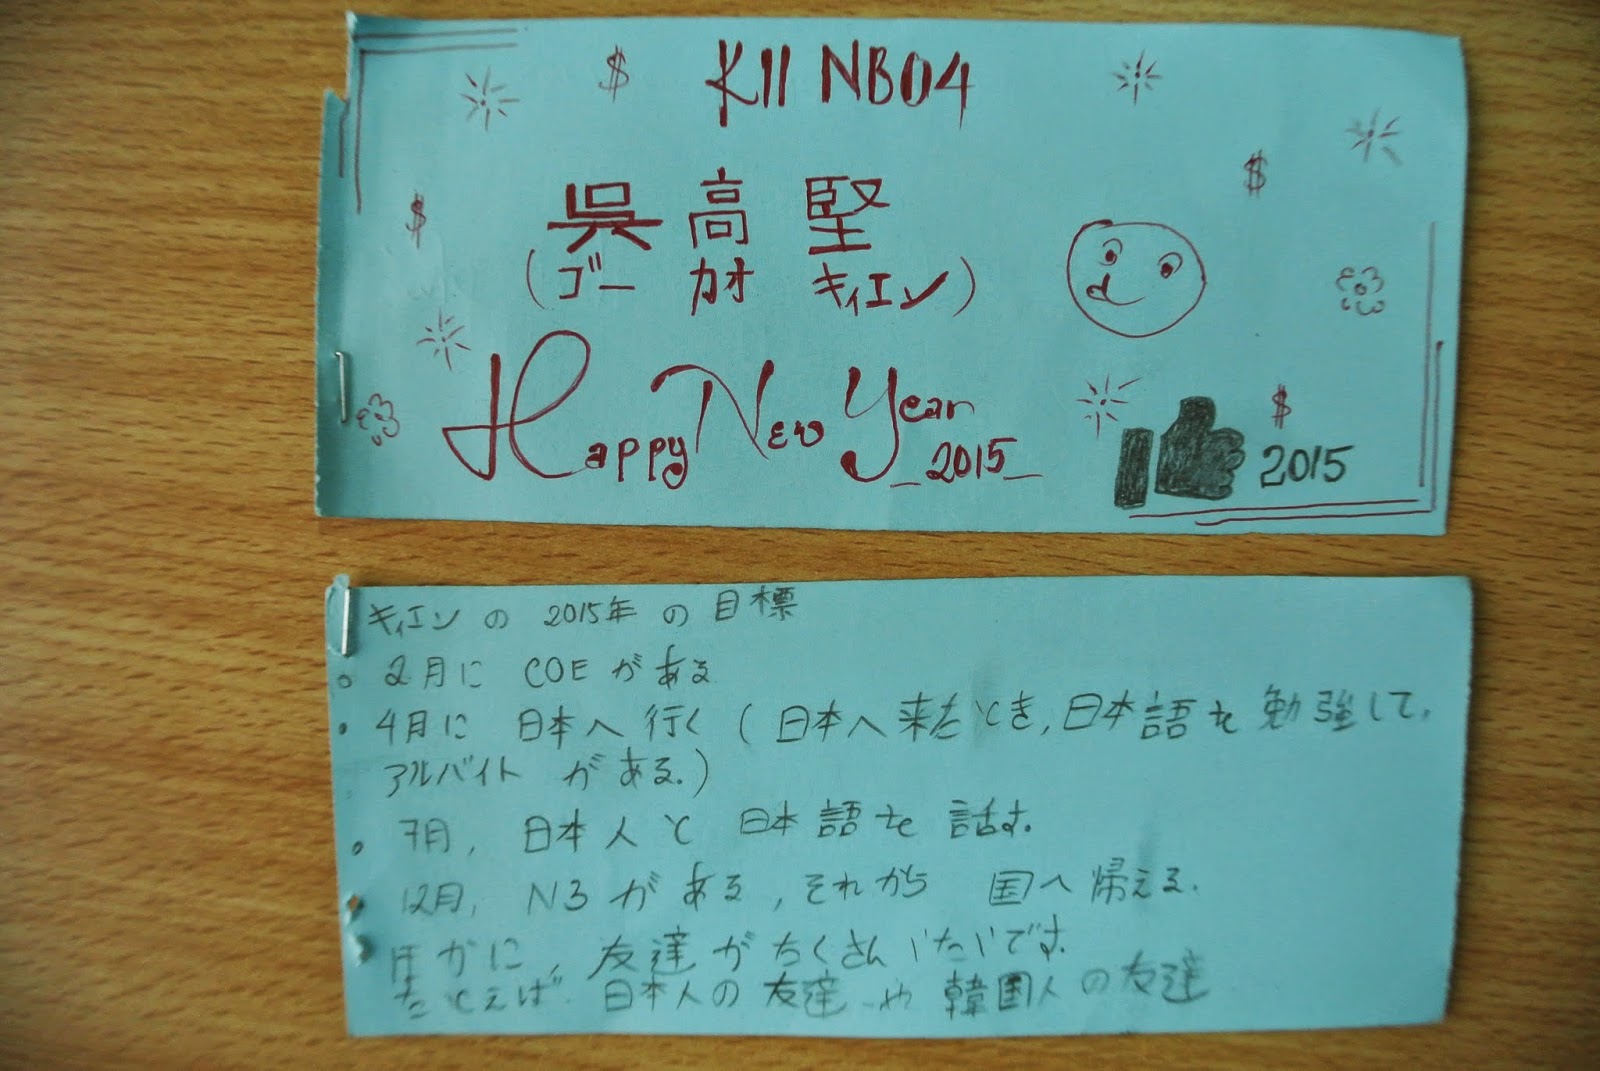 K11 NB04
呉 高 堅
(ゴー カオ キィエン)
Happy New Year
_2015_
2015
キィエン の 2015年 の 目標
2月に COE が ある
4月に 日本へ 行く ( 日本へ 来たとき, 日本語 を 勉強して,
アルバイト が ある.)
7月, 日本人 と 日本語 を 話す.
12月, N3 が ある, それから 国へ 帰える.
ほかに, 友達 が たくさん いたいです.
たとえば 日本人の 友達 や 韓国人 の 友達